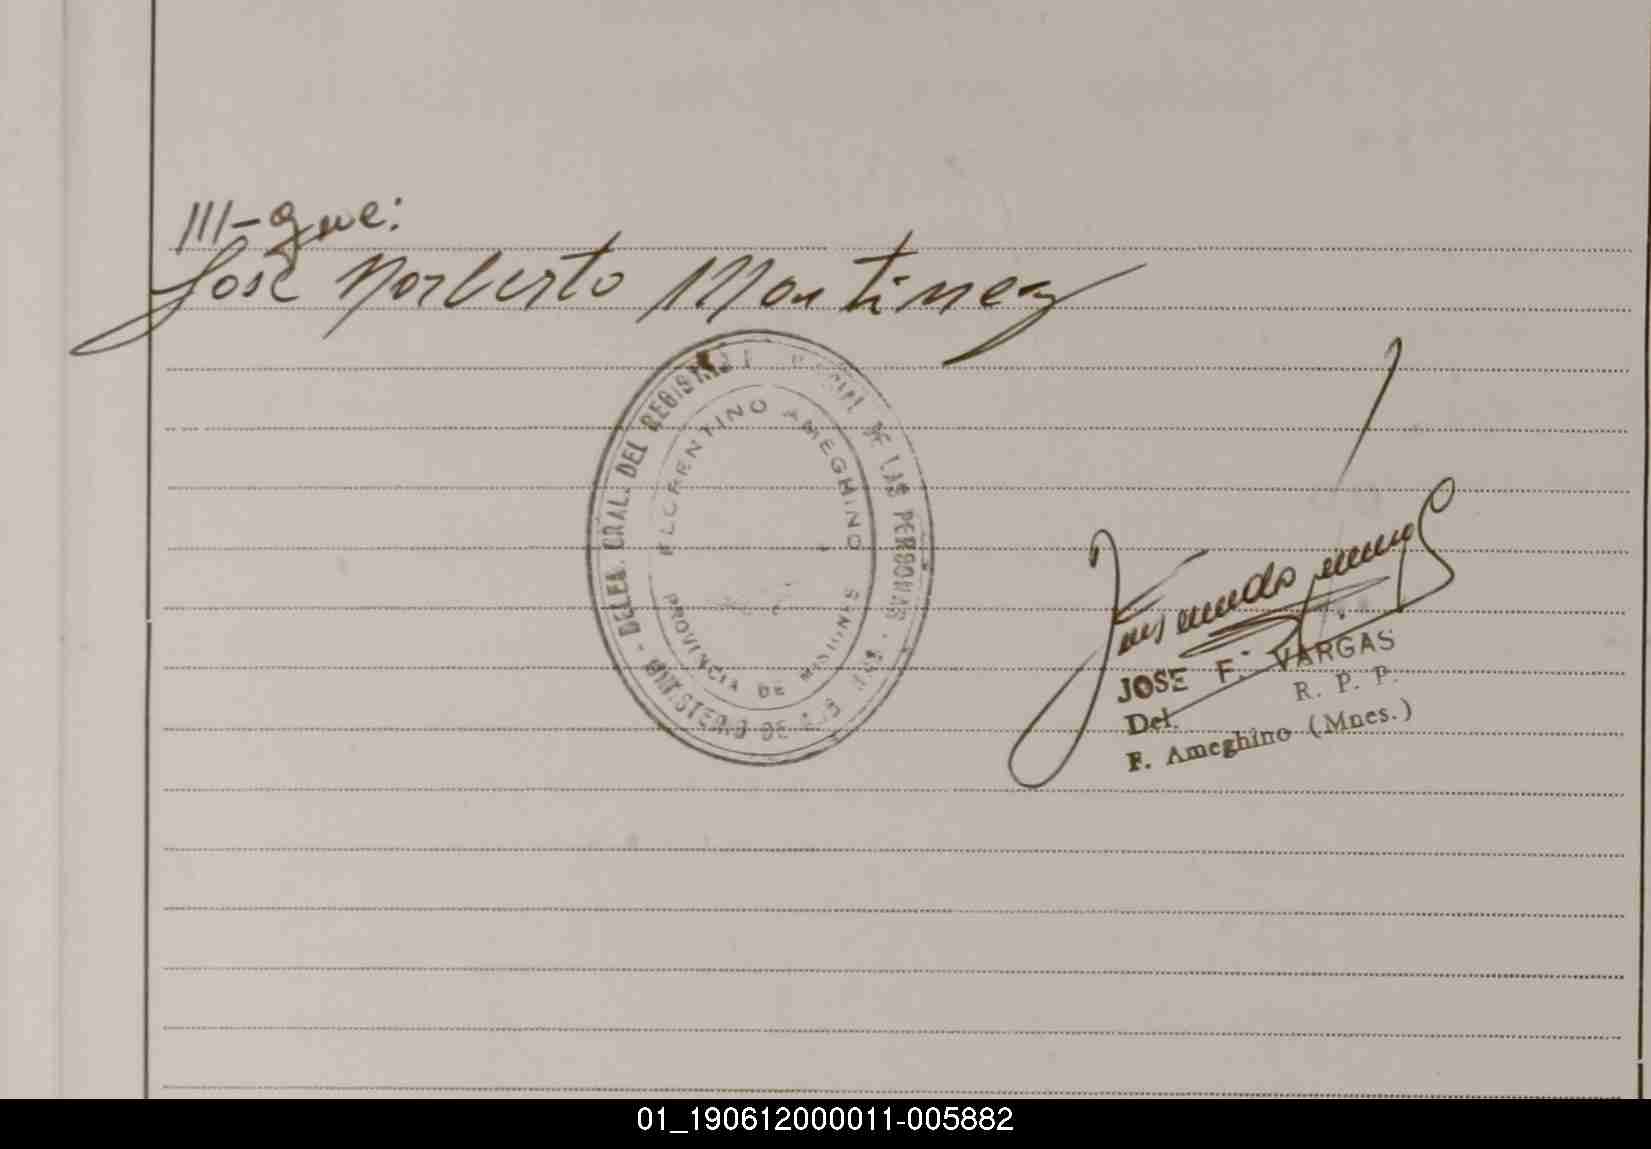 III-que:
Jose Norberto Martinez
DELEG. GRAL. DEL REGISTRO PROVINCIAL DE LAS PERSONAS
FLORENTINO AMEGHINO
PROVINCIA DE MISIONES
MINISTERIO DE
JOSE F. VARGAS
Del. R. P. P.
F. Ameghino (Mnes.)
01_190612000011-005882